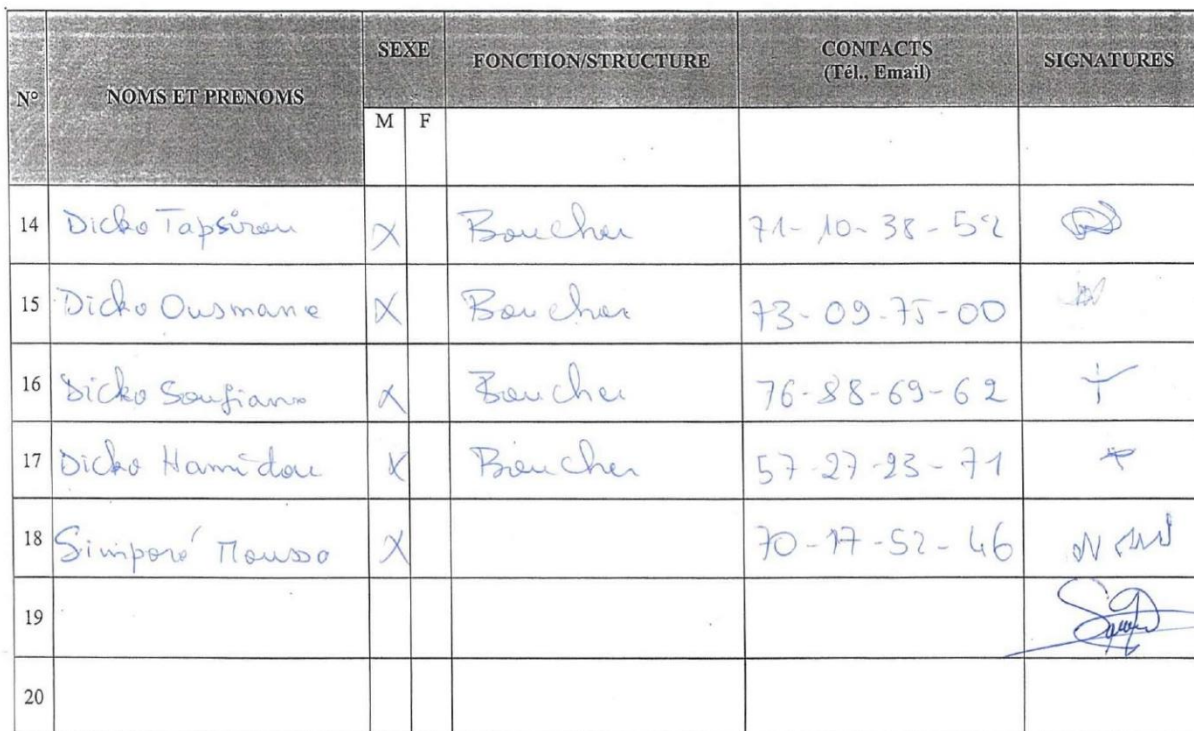 N° NOMS ET PRENOMS SEXE FONCTION/STRUCTURE CONTACTS SIGNATURES
(Tél., Email)
M F
14 Dicko Tapsirou X Boucher 71-10-38-52
15 Dicko Ousmane X Boucher 73-09-75-00
16 Dicko Soufiane X Boucher 76-88-69-62
17 Dicko Hamidou X Boucher 57-27-23-71
18 Simporé Moussa X 70-17-52-46
19
20